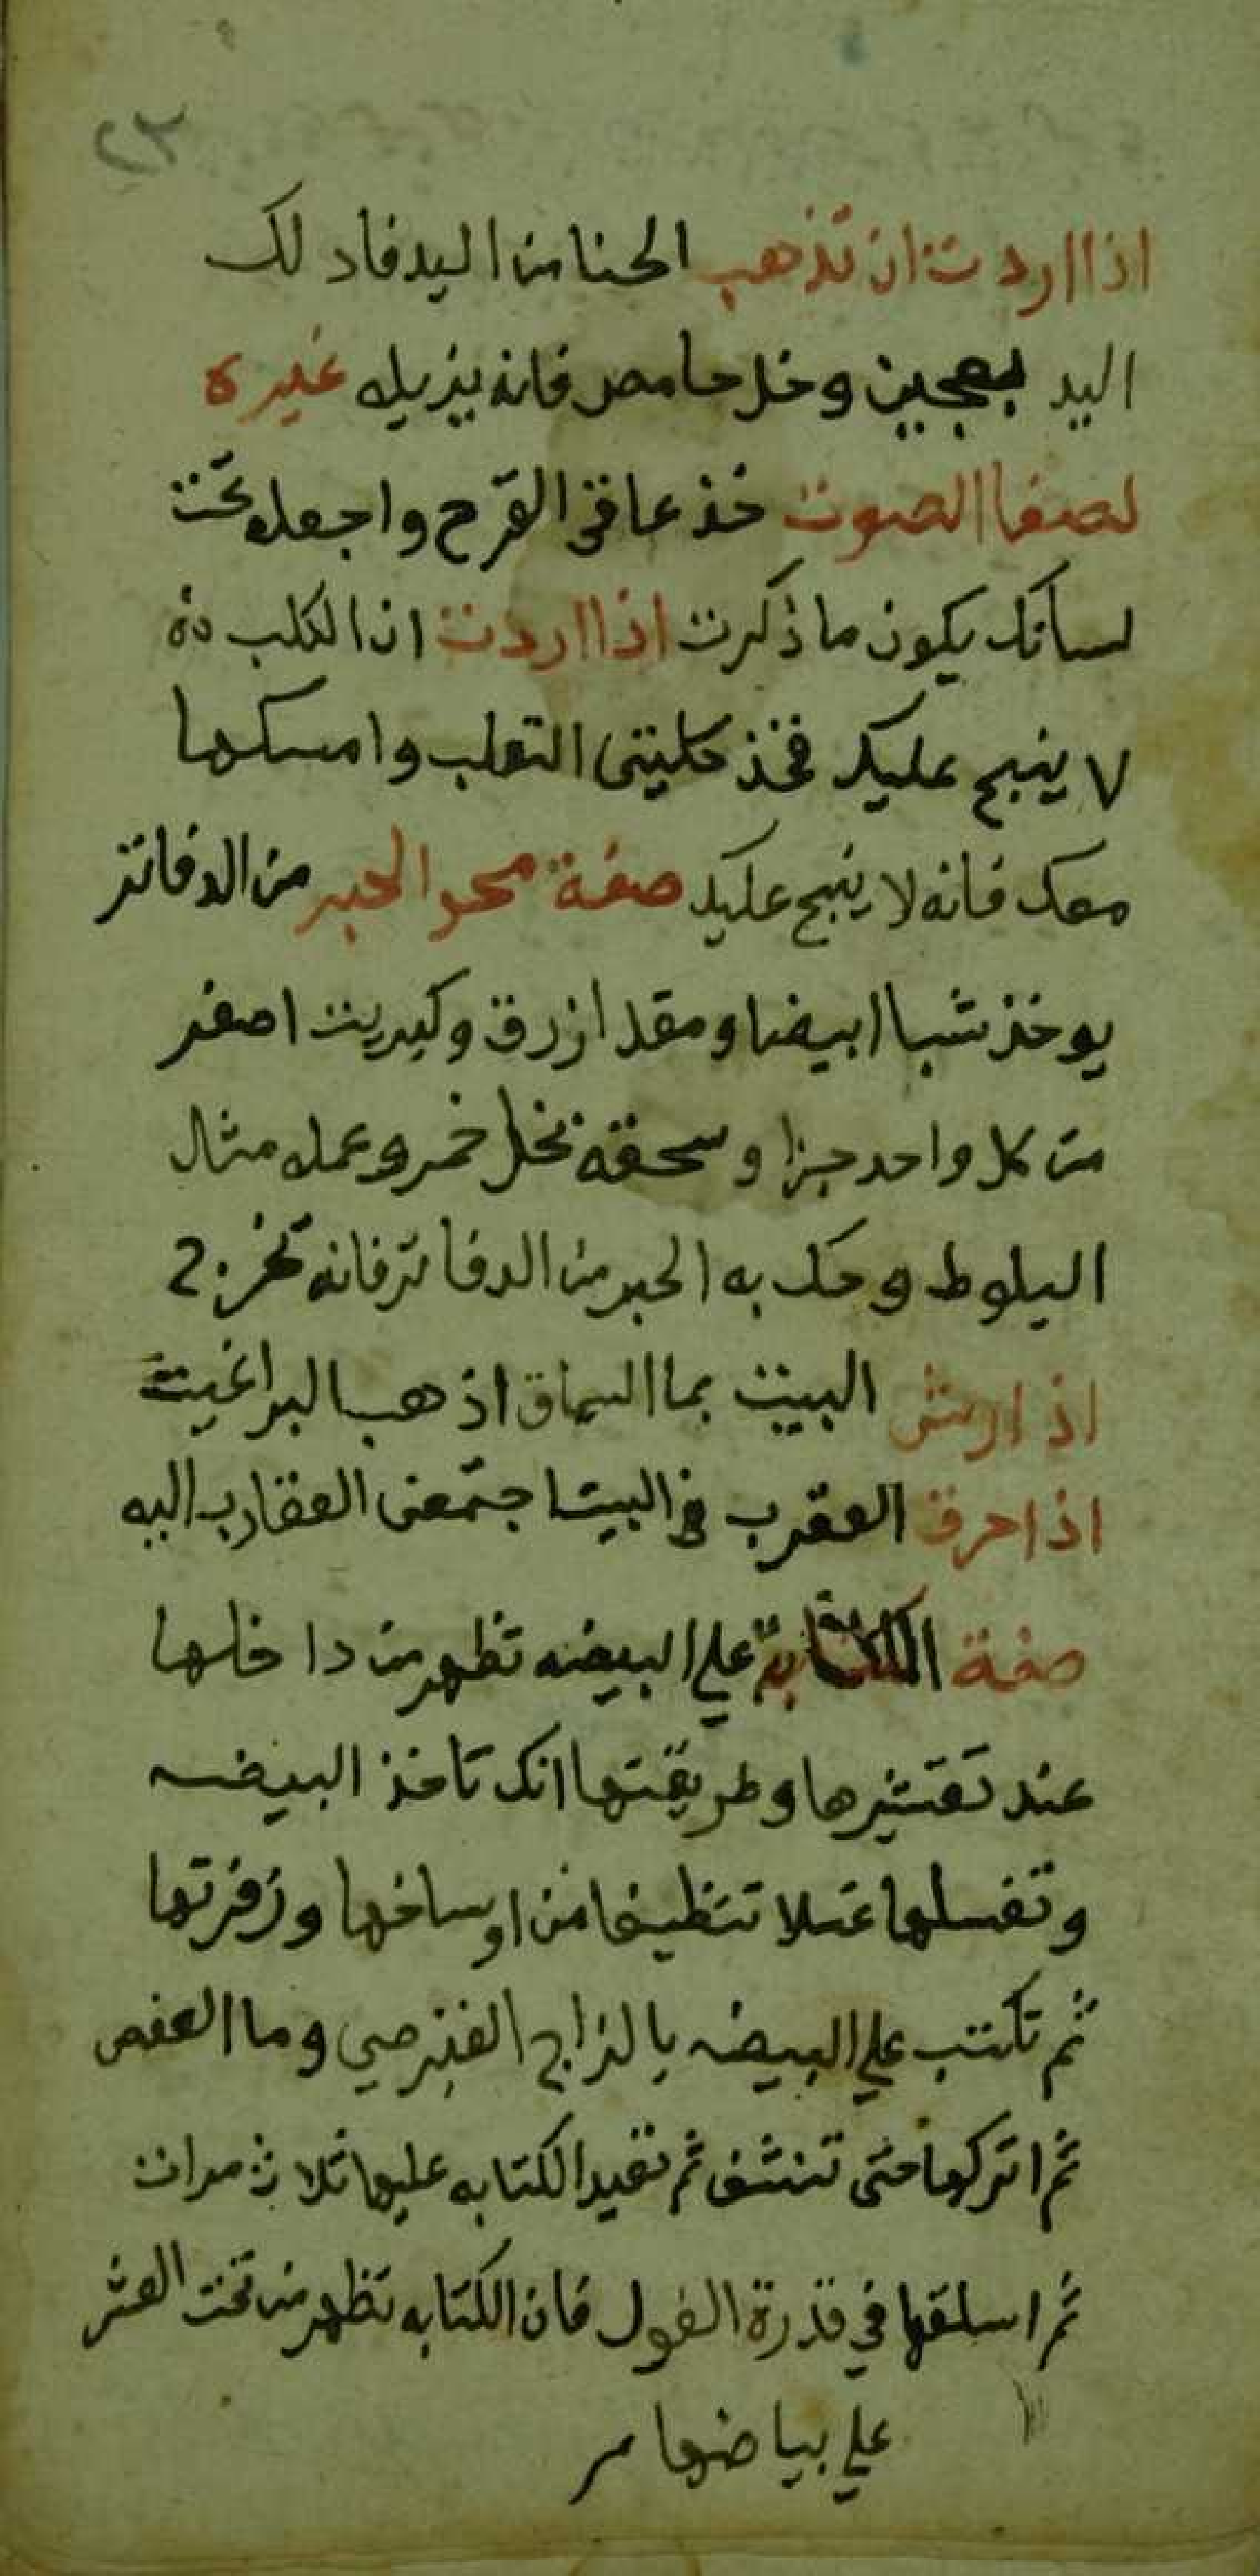 ٢٣
اذا اردت ان تذهب الحنا من اليد فادلك
اليد بعجين وخل حامض فانه يزيله غيره
لصفا الصوت خذ عاقر القرح واجعله تحت
لسانك يكون ما ذكرت اذا اردت ان الكلب
لا ينبح عليك فخذ كليتى الثعلب وامسكها
معك فانه لا ينبح عليك صفة محو الحبر من الدفاتر
يوخذ شبا ابيضا ومقد ازرق وكبريت اصفر
من كل واحد جزا وسحقه بخل خمر وعمله مثال
البلوط وحك به الحبر من الدفاتر فانه
اذا رش البيت بما السماق اذهب البراغيت
اذا احرق العقرب في البيت اجتمعن العقارب اليه
صفة الكتابة علي البيضه تظهر من داخلها
عند تقتشيرها وطريقتها انك تاخذ البيضه
وتغسلها غسلا تنظيفا من اوساخها وزفرتها
ثم تكتب علي البيضه بالزاج القبرصي وما العفص
ثم اتركها حتى تنشف ثم تعيد الكتابه عليها ثلاث مرات
ثم اسلقها في قدرة الفول فان الكتابه تظهر من تحت القشر
علي بياضها